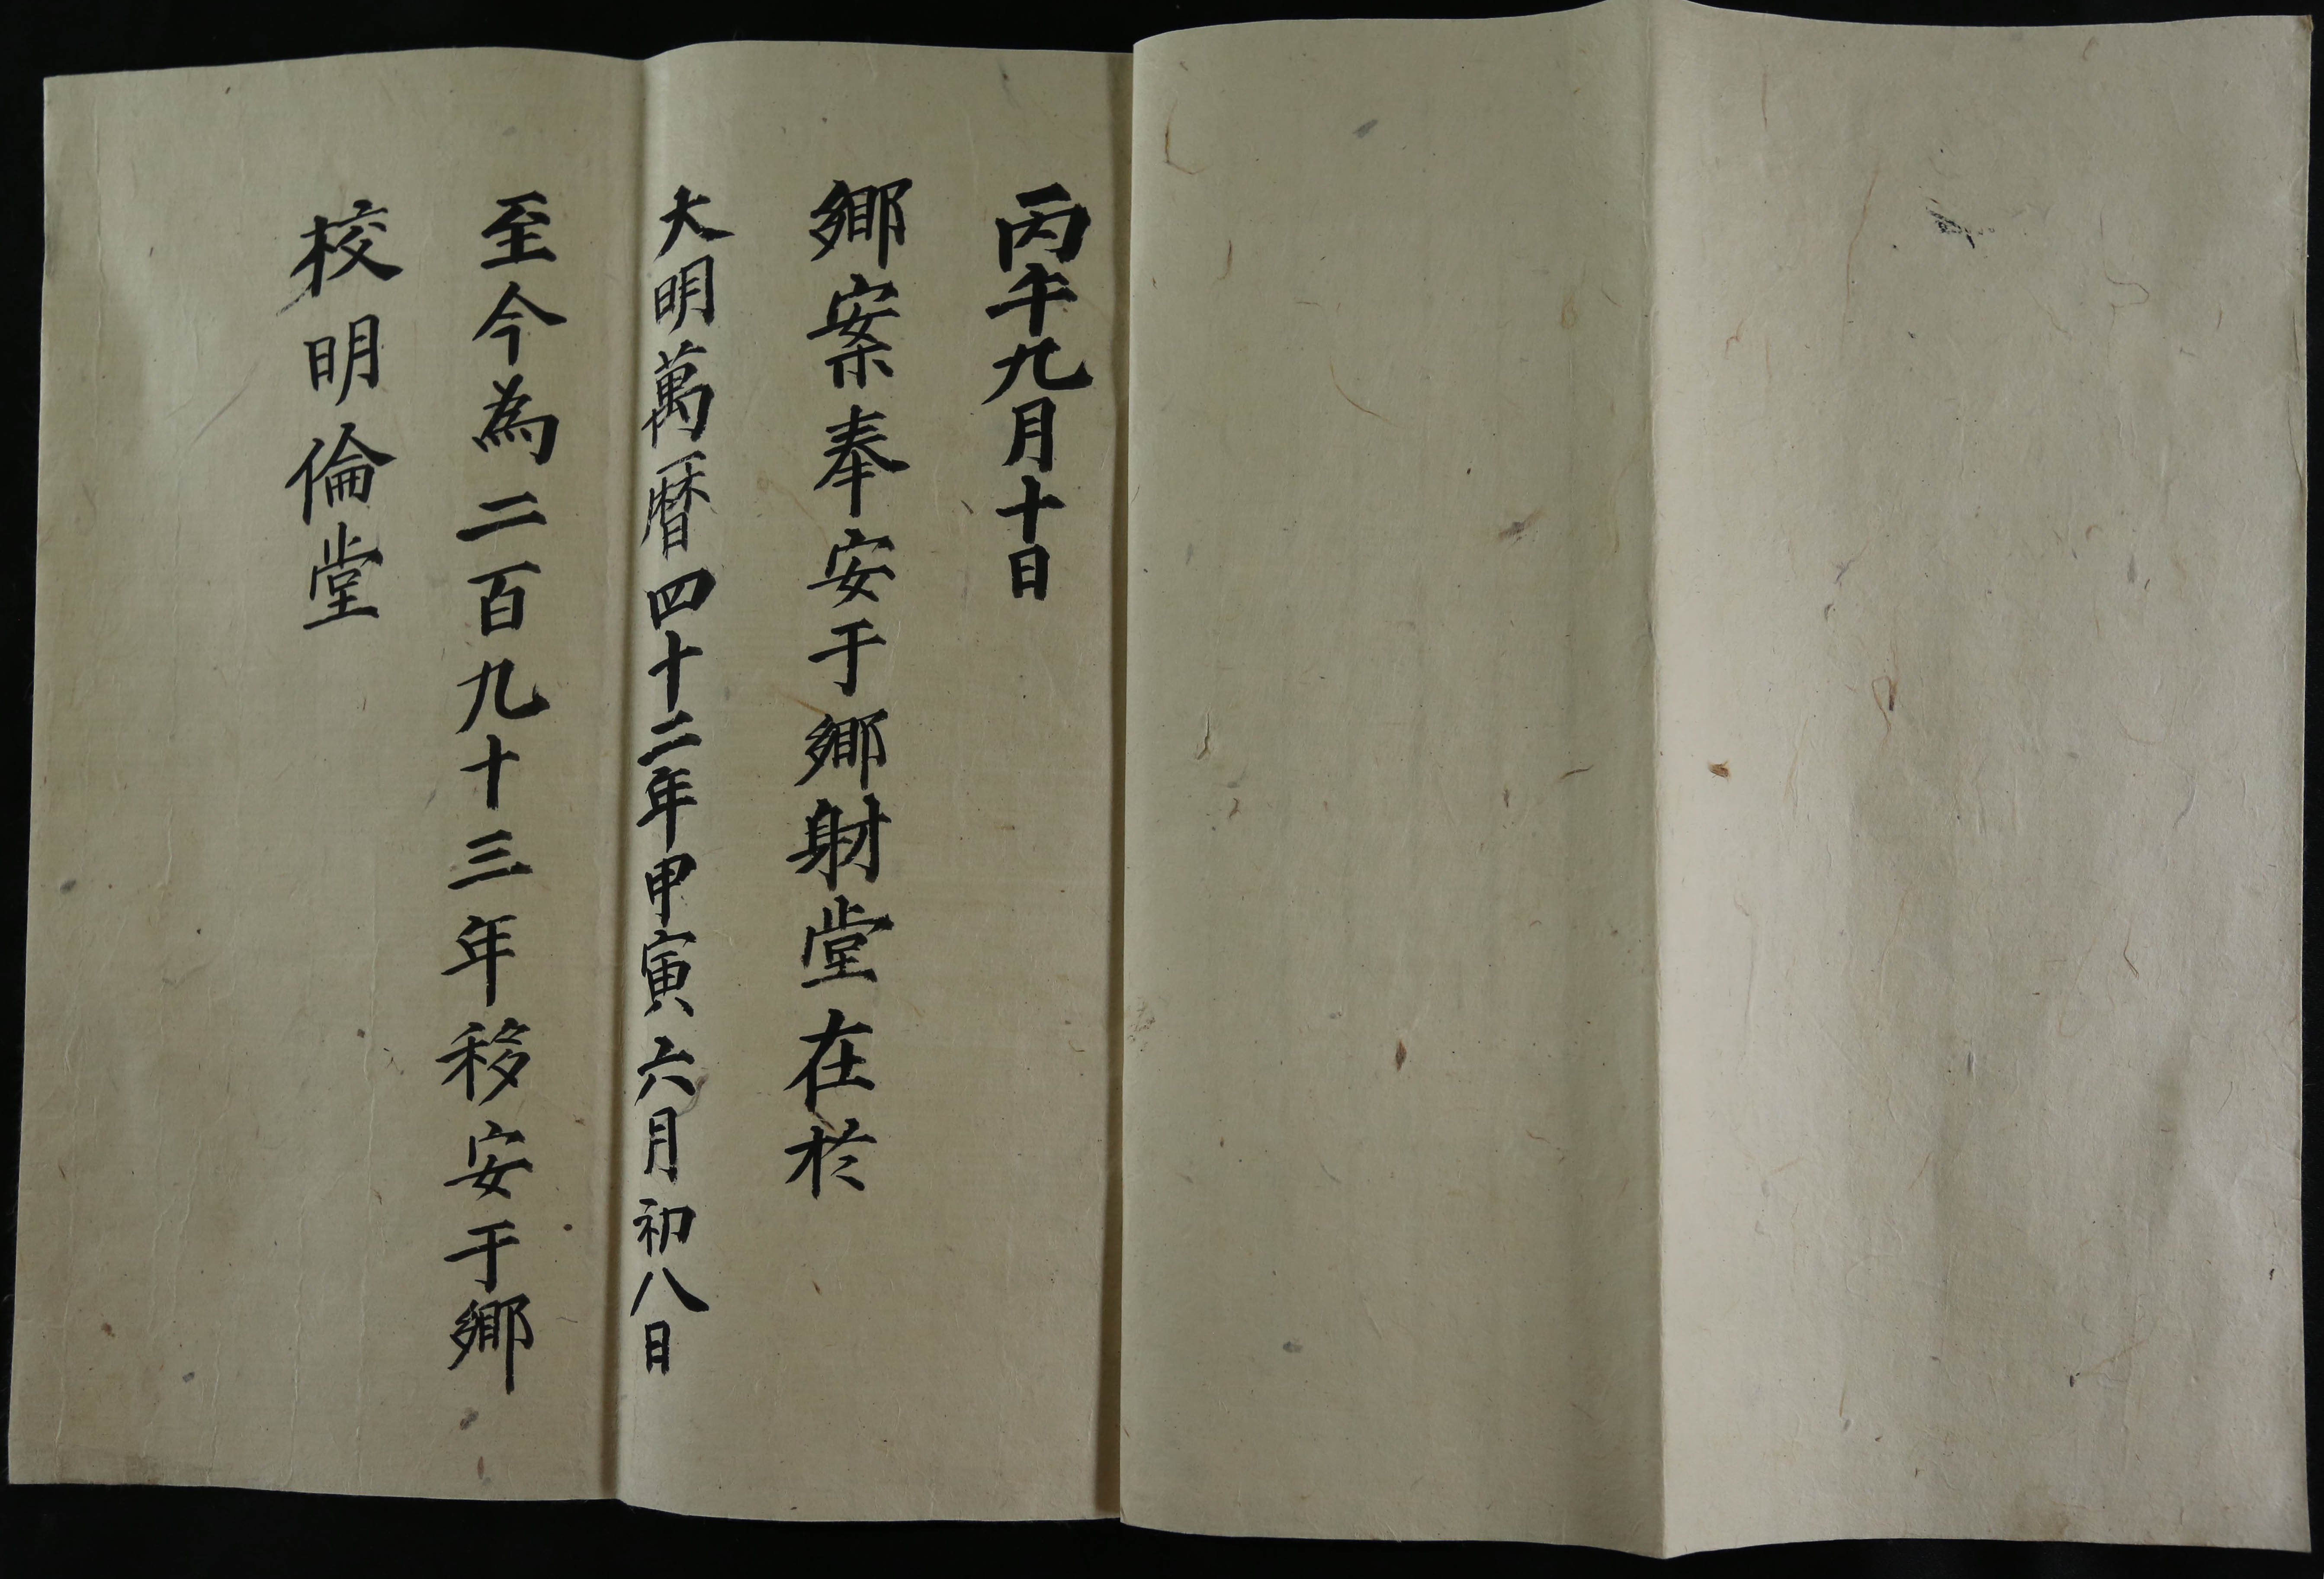 丙午九月十日
鄕案奉安于鄕射堂在於
大明萬曆四十二年甲寅六月初八日
至今為二百九十三年移安于鄕
校明倫堂